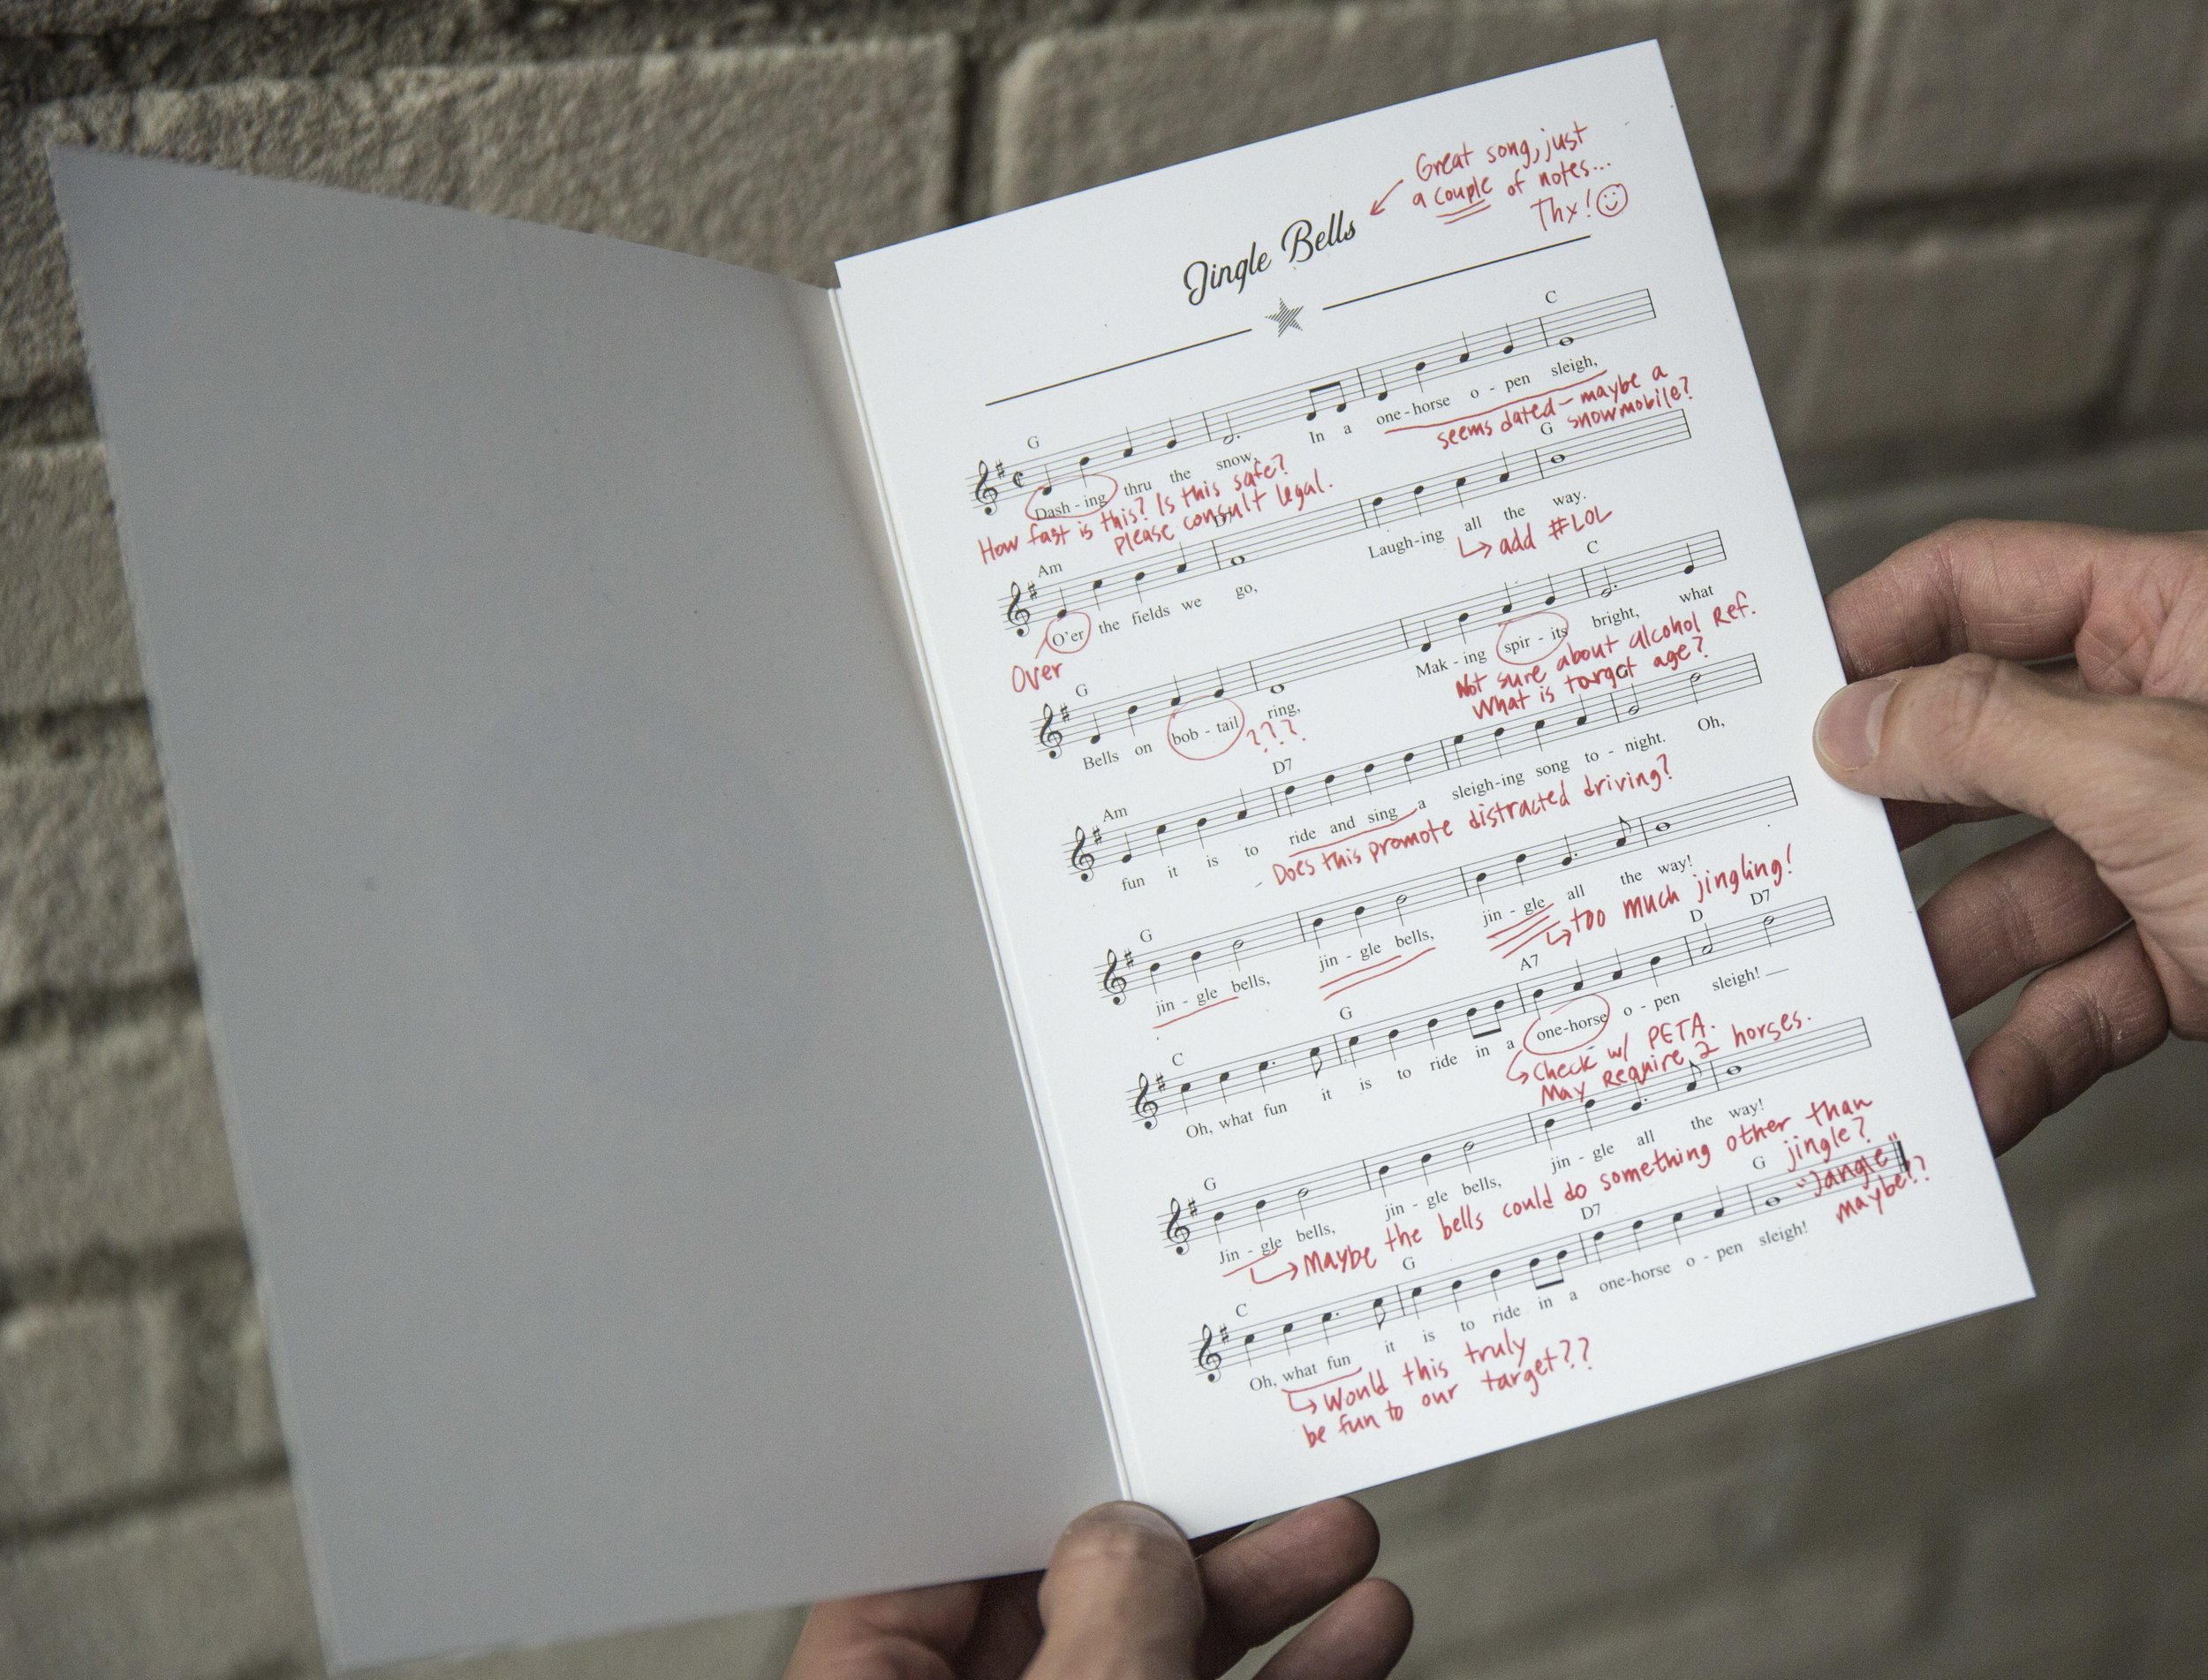 Great song, just
a couple of notes...
Thx!
Jingle Bells
C
G
Dash - ing thru the snow, In a one - horse o - pen sleigh,
seems dated - maybe a
snowmobile?
How fast is this? Is this safe?
Please consult legal.
Am D7 G
O'er the fields we go, Laugh-ing all the way.
Over
add #LOL
G C
Bells on bob - tail ring, Mak - ing spir - its bright, what
???
Not sure about alcohol Ref.
What is target age?
Am D7 G
fun it is to ride and sing a sleigh-ing song to - night. Oh,
- Does this promote distracted driving?
G
jin - gle bells, jin - gle bells, jin - gle all the way!
too much jingling!
C G A7 D D7
Oh, what fun it is to ride in a one-horse o - pen sleigh!
Check w/ PETA.
May Require 2 horses.
G
Jin - gle bells, jin - gle bells, jin - gle all the way!
Maybe the bells could do something other than
jingle?
"Jangle"
maybe??
C G D7 G
Oh, what fun it is to ride in a one-horse o - pen sleigh!
Would this truly
be fun to our target??